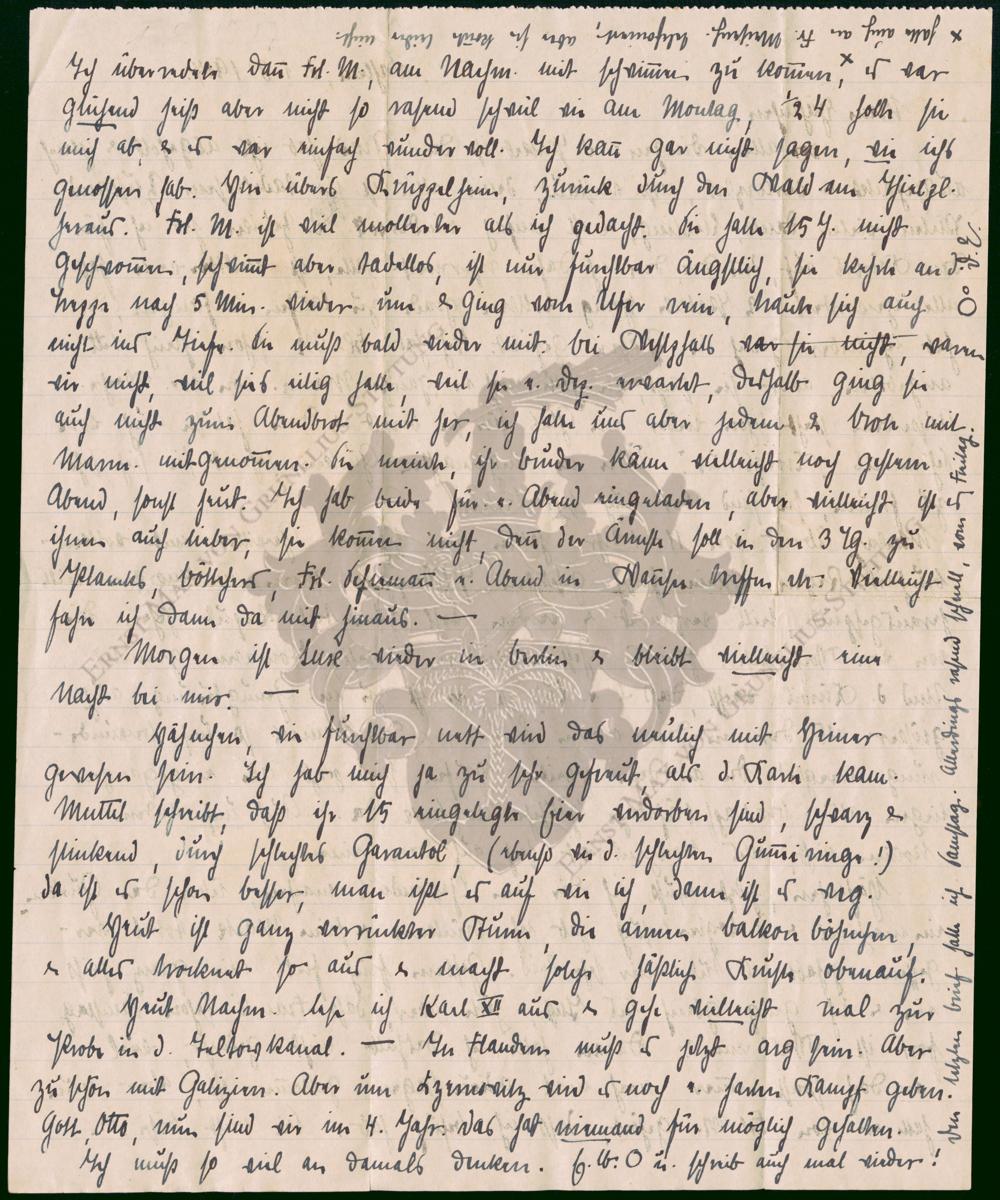 x hatte auch an Fr. Meisench. telefoniert, aber sie konnte leider nicht.
Ich überredete dann Frl. M., am Nachm. mit schwimmen zu kommen,x es war
glühend heiß aber nicht so rasend schwül wie am Montag, 1/2 4 holte sie
mich ab, & es war einfach wundervoll. Ich kann gar nicht sagen, wie ichs
genossen hab. Hin übers Krüppelheim, zurück durch den Wald am Thielpl.
heraus. Frl. M. ist viel mollerter als ich gedacht. Sie hatte 15 J. nicht
geschwommen, schwimmt aber tadellos, ist nur furchtbar ängstlich, sie kehrte an d.
Treppe nach 5 Min. wieder um & ging vom Ufer rein, traute sich auch
nicht ins Tiefe. Sie muß bald wieder mit. bei Westphals war sie nicht, waren
wir nicht, weil sies eilig hatte, weil sie e. Dep. erwartet, deshalb ging sie
auch nicht zum Abendbrot mit her, ich hatte uns aber jedem 2 Brote mit
Marm. mitgenommen. Sie meinte, ihr Bruder käme vielleicht noch gestern
Abend, sonst heut. Ich hab beide für e. Abend eingeladen, aber vielleicht ist es
ihnen auch lieber, sie kommen nicht, denn der Ärmste soll in den 3 Tg. zu
Plancks, Böttchers, Frl. Schiemann e. Abend in Wannsee treffen etc. Vielleicht
fahre ich dann da mit hinaus. —
Morgen ist Suse wieder in Berlin & bleibt vielleicht eine
Nacht bei mir. —
Hähnchen, wie furchtbar nett wird das neulich mit Heiner
gewesen sein. Ich hab mich ja zu sehr gefreut, als d. Karte kam.
Muttel schreibt, daß ihr 15 eingelegte Eier verdorben sind, schwarz &
stinkend, durch schlechtes Garantol, (ebenso wie d. schlechten Gummiringe!)
da ist es schon besser, man ißt es auf wie ich, dann ist es weg.
Heut ist ganz verrückter Sturm, die armen Balkonböhnchen,
& alles trocknet so aus & macht solche häßliche Kruste obenauf.
Heut Nachm. lese ich Karl XII aus & gehe vielleicht mal zur
Probe in d. Teltowkanal. — In Flandern muß es jetzt arg sein. Aber
zu schön mit Galizien. Aber um Czernowitz wird es noch e. harten Kampf geben.
Gott, Otto, nun sind wir im 4. Jahr. Das hat niemand für möglich gehalten.
Ich muß so viel an damals denken. G. B. O u. schreib auch mal wieder!
Den letzten Brief hatte ich Samstag. Allerdings rasend schnell, vom Freitag.
O° D. E.